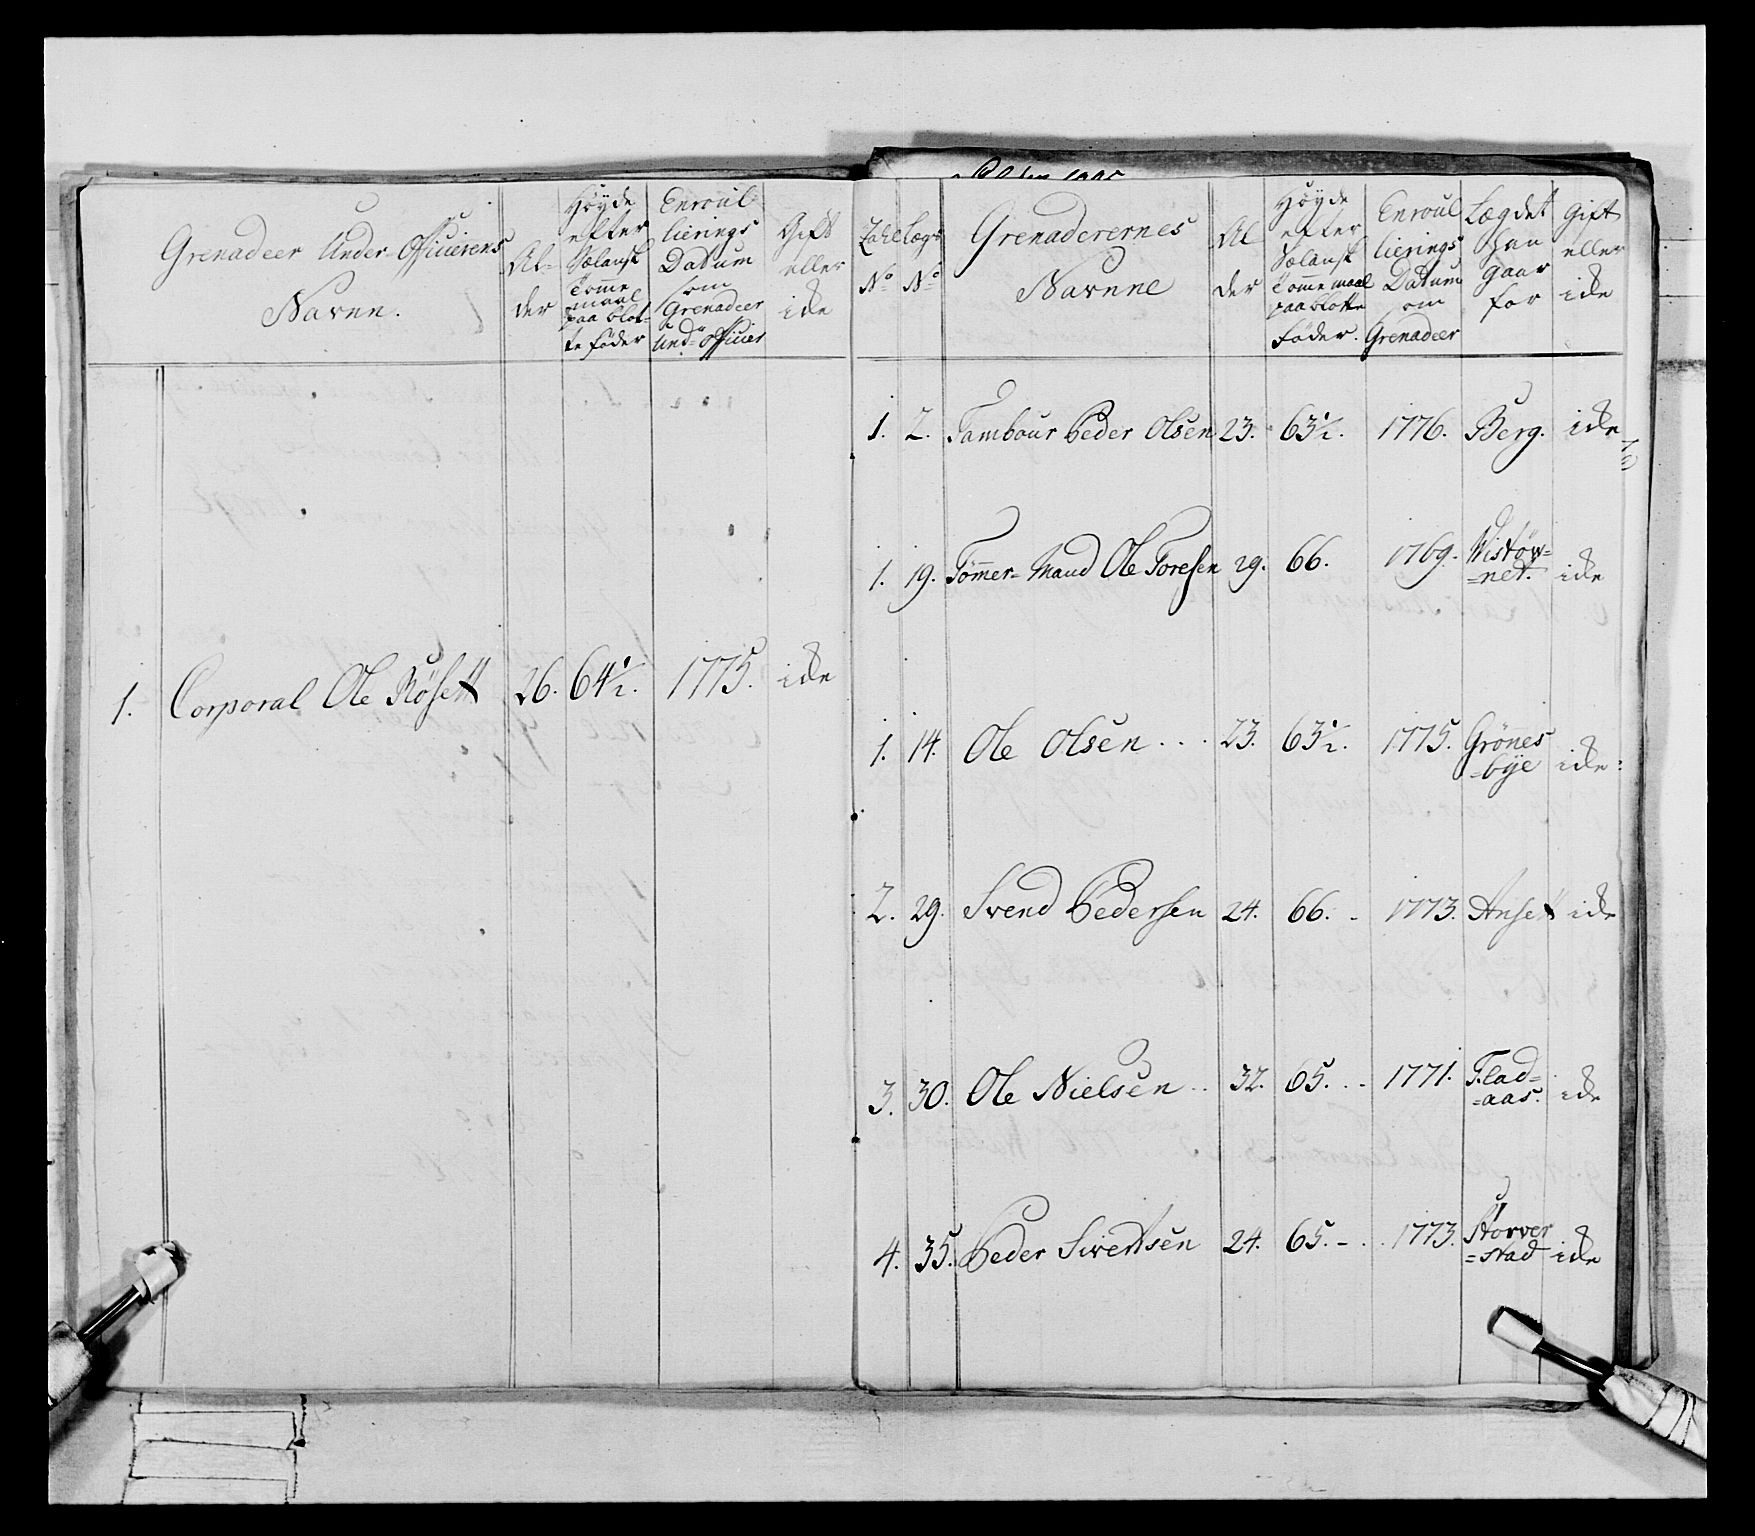 Grenadeer Under Officierens
Navne.
Al-
der
Høyde
efter
Sælansk
Tomme
maal
paa blot-
te føder
Enroul
lierings
Datum
som
Grenadeer
Und: Officier
Gift
eller
ide
1. Corporal Ole Røsett 26. 64½. 1775. ide
Zahl
No
Lægs
No
Grenaderernes
Navnne
Al
der
Høyde
efter
Sælansk
Tomme maal
paa blotte
Føder.
Enroul
lierings
Datum
som
Grenadeer
Lægdet
han
gaar
for
Gift
eller
ide
1. 2. Tambour Peder Olsen 23. 63½. 1776. Berg. ide
1. 19. Tømmer-Mand Ole Toresen 29. 66. 1769. Wistøw=
=net. ide
1. 14. Ole Olsen ... 23. 63½. 1775. Grønes
=bye ide:
2. 29. Svend Pedersen 24. 66. - 1773. Ansett ide
3. 30. Ole Nielsen .. 32. 65. .- 1771. Flad=
=aas. ide
4. 35. Peder Sivertsen 24. 65. -. 1773. Storver
=stad ide